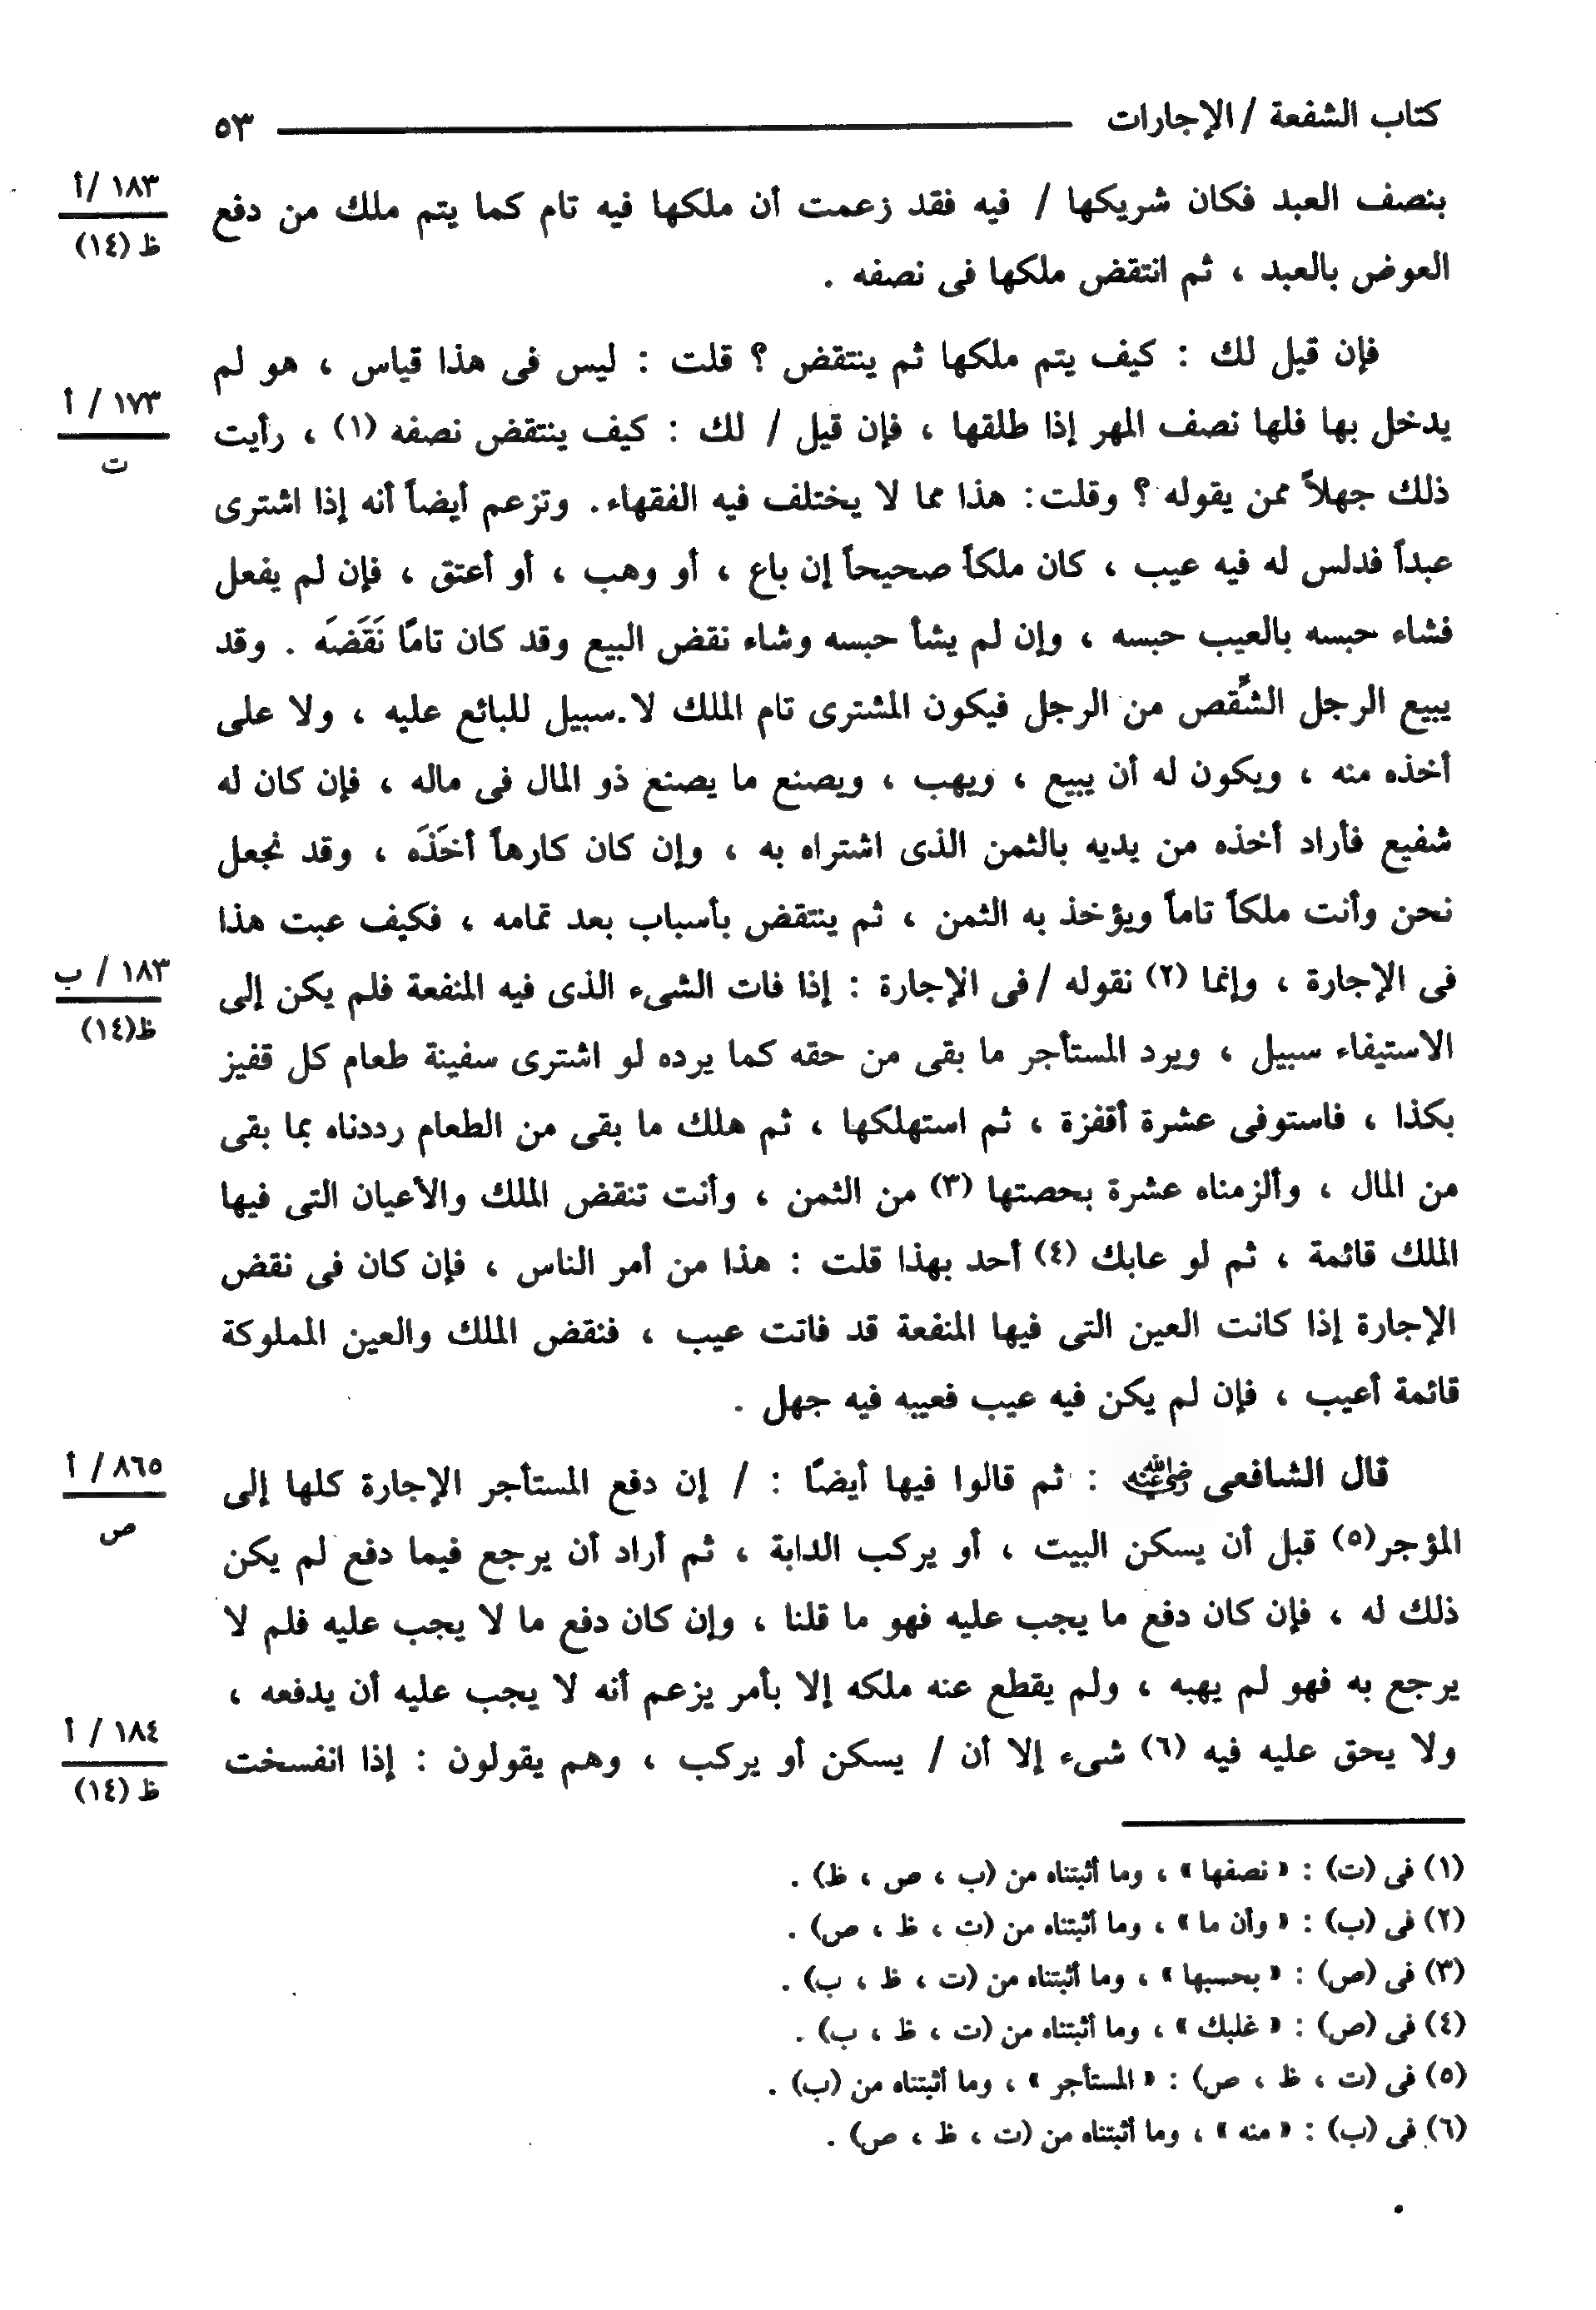 كتاب الشفعة / الإجارات ٥٣
١٨٣ /أ
ظ (١٤)
بنصف العبد فكان شريكها / فيه فقد زعمت أن ملكها فيه تام كما يتم ملك من دفع
العوض بالعبد ، ثم انتقض ملكها فى نصفه .
فإن قيل لك : كيف يتم ملكها ثم ينتقض ؟ قلت : ليس فى هذا قياس ، هو لم
١٧٣ / أ
ت
يدخل بها فلها نصف المهر إذا طلقها ، فإن قيل / لك : كيف ينتقض نصفه (١) ، رأيت
ذلك جهلاً ممن يقوله ؟ وقلت : هذا مما لا يختلف فيه الفقهاء. وتزعم أيضاً أنه إذا اشترى
عبداً فدلس له فيه عيب ، كان ملكاً صحيحاً إن باع ، أو وهب ، أو أعتق ، فإن لم يفعل
فشاء حبسه بالعيب حبسه ، وإن لم يشأ حبسه وشاء نقض البيع وقد كان تامًا نَقَضَه . وقد
يبيع الرجل الشِّقص من الرجل فيكون المشترى تام الملك لا سبيل للبائع عليه ، ولا على
أخذه منه ، ويكون له أن يبيع ، ويهب ، ويصنع ما يصنع ذو المال فى ماله ، فإن كان له
شفيع فأراد أخذه من يديه بالثمن الذى اشتراه به ، وإن كان كارهاً أخَذَه ، وقد نجعل
نحن وأنت ملكاً تاماً ويؤخذ به الثمن ، ثم ينتقض بأسباب بعد تمامه ، فكيف عبت هذا
١٨٣ / ب
ظ(١٤)
فى الإجارة ، وإنما (٢) نقوله /فى الإجارة : إذا فات الشىء الذى فيه المنفعة فلم يكن إلى
الاستيفاء سبيل ، ويرد المستأجر ما بقى من حقه كما يرده لو اشترى سفينة طعام كل قفيز
بكذا ، فاستوفى عشرة أقفزة ، ثم استهلكها ، ثم هلك ما بقى من الطعام رددناه بما بقى
من المال ، وألزمناه عشرة بحصتها (٣) من الثمن ، وأنت تنقض الملك والأعيان التى فيها
الملك قائمة ، ثم لو عابك (٤) أحد بهذا قلت : هذا من أمر الناس ، فإن كان فى نقض
الإجارة إذا كانت العين التى فيها المنفعة قد فاتت عيب ، فنقض الملك والعين المملوكة
قائمة أعيب ، فإن لم يكن فيه عيب فعيبه فيه جهل .
٨٦٥ / أ
ص
قال الشافعى رضي الله عنه : ثم قالوا فيها أيضًا : / إن دفع المستأجر الإجارة كلها إلى
المؤجر(٥) قبل أن يسكن البيت ، أو يركب الدابة ، ثم أراد أن يرجع فيما دفع لم يكن
ذلك له ، فإن كان دفع ما يجب عليه فهو ما قلنا ، وإن كان دفع ما لا يجب عليه فلم لا
يرجع به فهو لم يهبه ، ولم يقطع عنه ملكه إلا بأمر يزعم أنه لا يجب عليه أن يدفعه ،
١٨٤ / أ
ظ (١٤)
ولا يحق عليه فيه (٦) شىء إلا أن / يسكن أو يركب ، وهم يقولون : إذا انفسخت
(١) فى (ت) : « نصفها » ، وما أثبتناه من (ب ، ص ، ظ) .
(٢) فى (ب) : « وأن ما » ، وما أثبتناه من (ت ، ظ ، ص) .
(٣) فى (ص) : « بحسبها » ، وما أثبتناه من (ت ، ظ ، ب) .
(٤) فى (ص) : « غلبك » ، وما أثبتناه من (ت ، ظ ، ب) .
(٥) فى (ت ، ظ ، ص) : « المستأجر » ، وما أثبتناه من (ب) .
(٦) فى (ب) : « منه » ، وما أثبتناه من (ت ، ظ ، ص) .